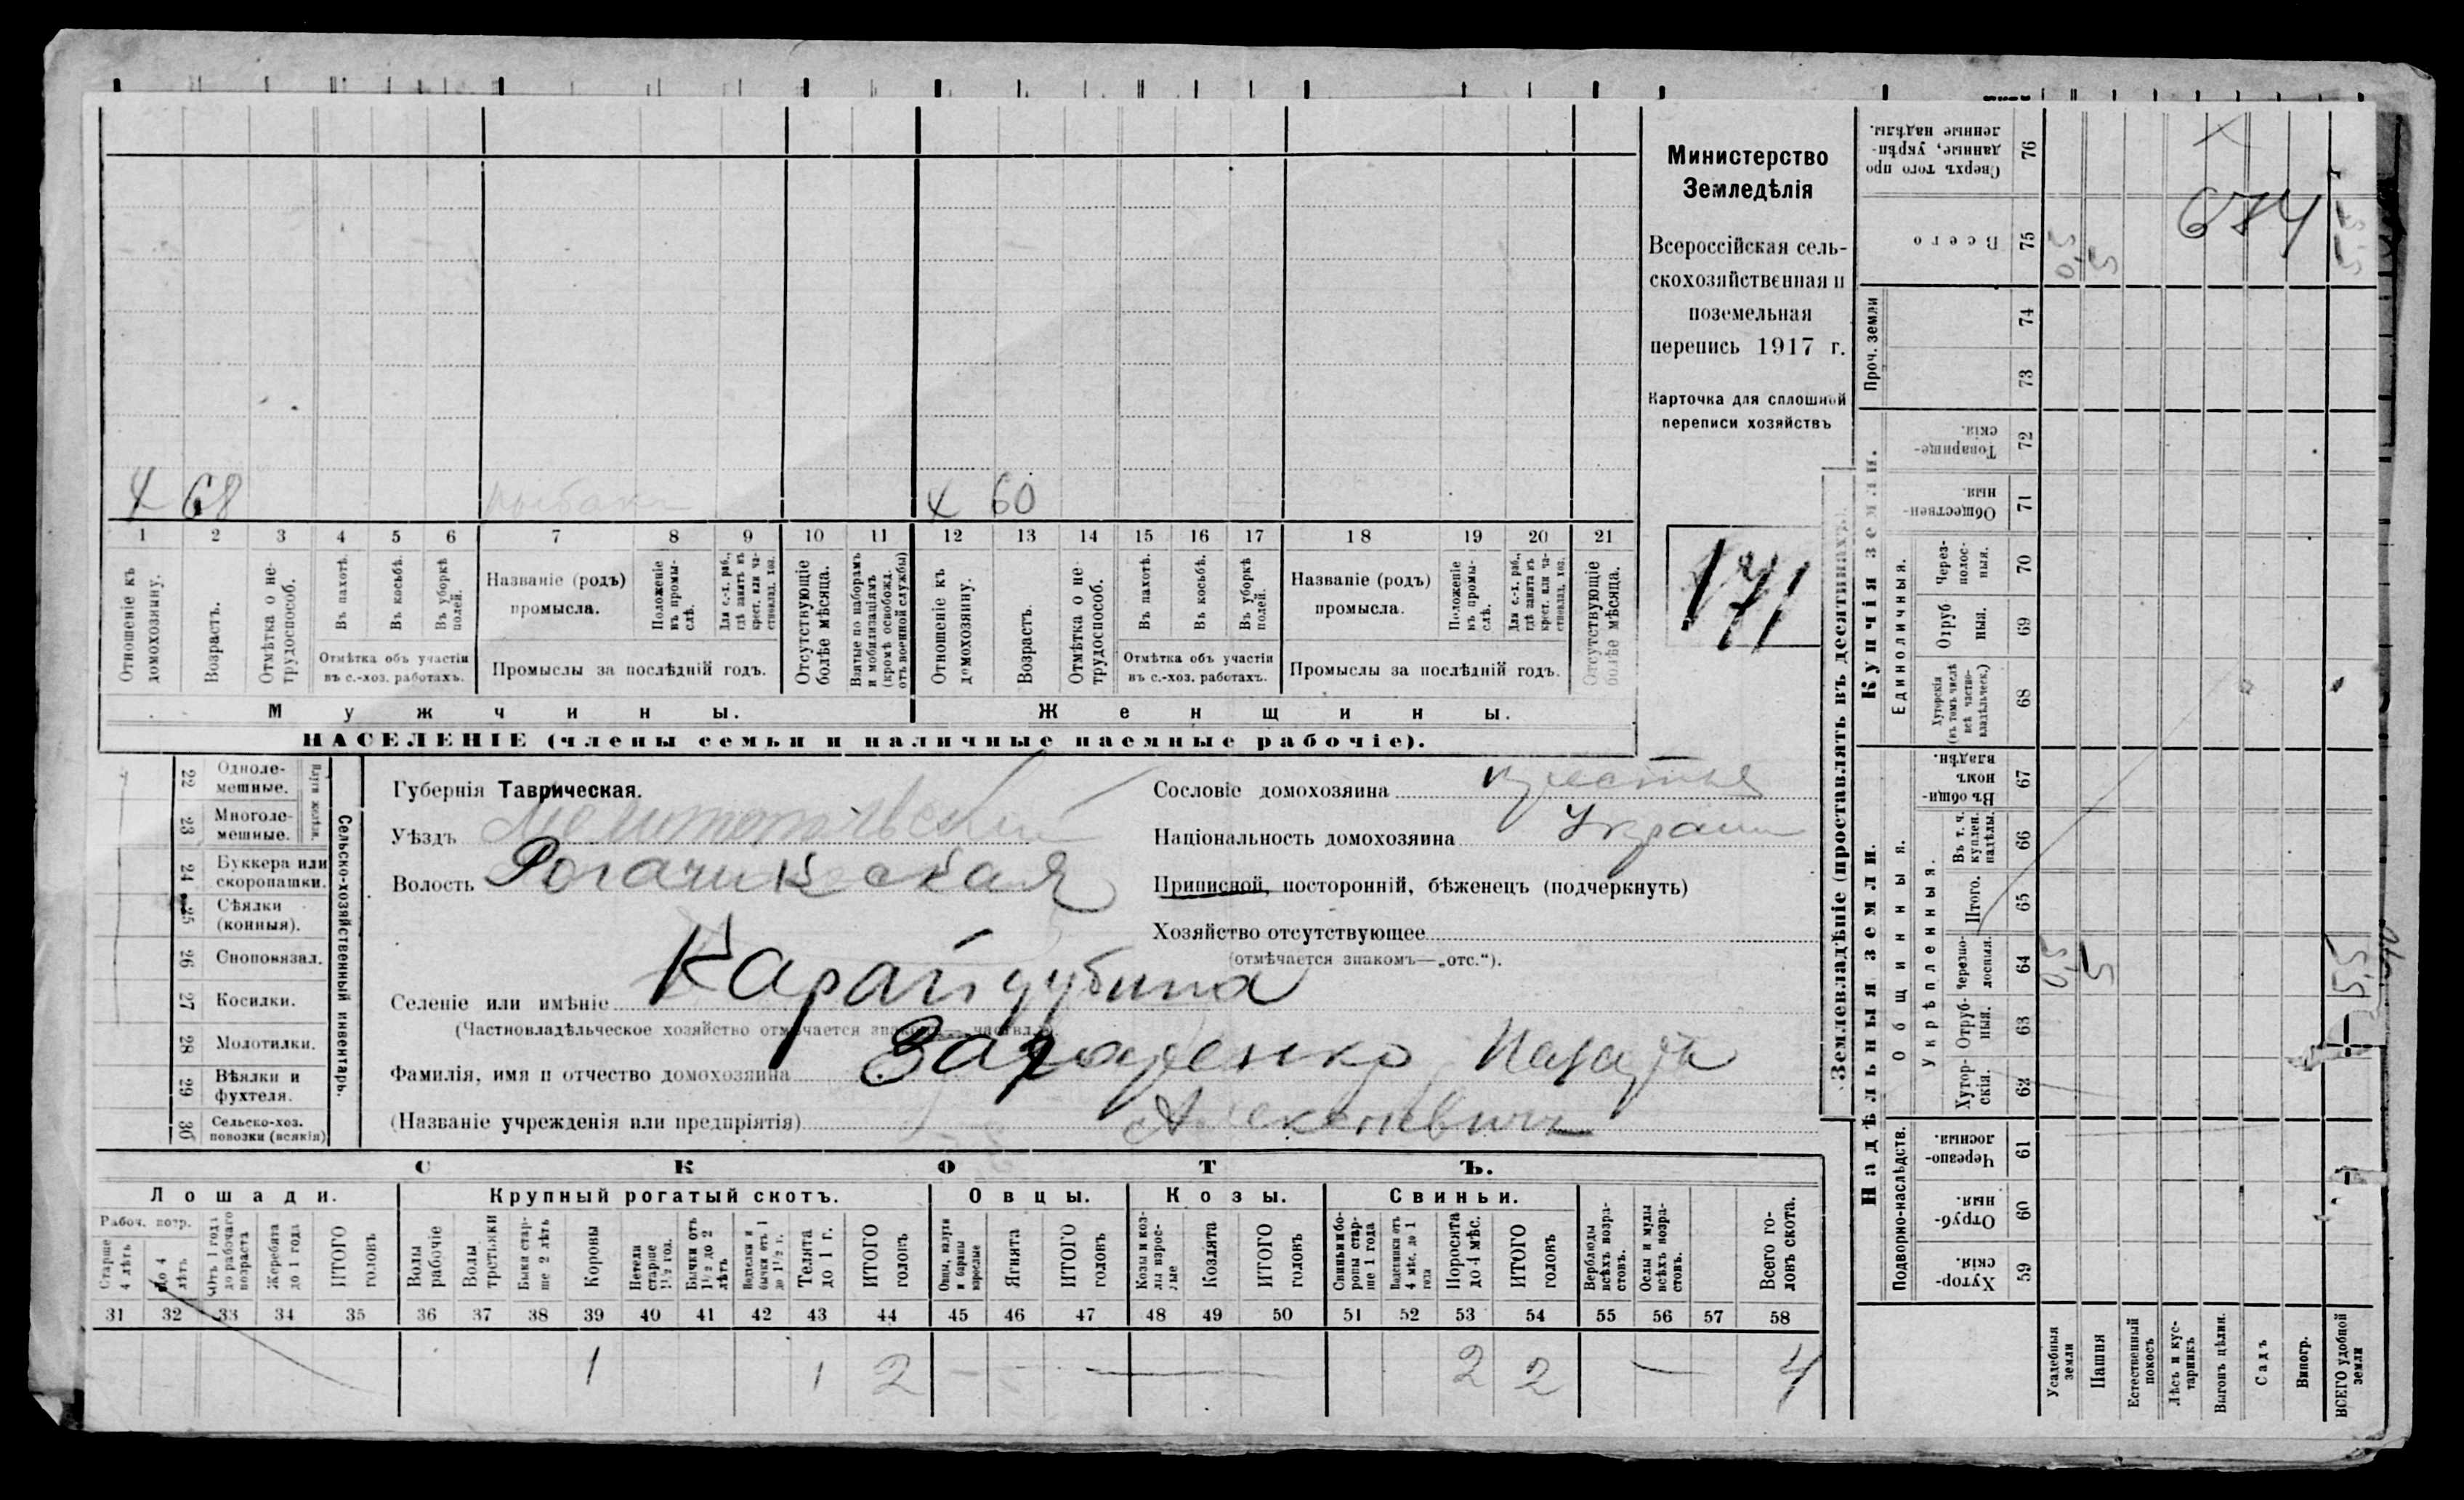 Министерство
Земледѣлія
Всероссійская сель-
скохозяйственная и
поземельная
перепись 1917 г.
Карточка для сплошной
переписи хозяйствъ
171
х 68 х 60
1 2 3 4 5 6 7 8 9 10 11 12 13 14 15 16 17 18 19 20 21
Отношеніе къ домохозяину.
Возрастъ.
Отмѣтка о не-трудоспособ.
Въ пахотѣ.
Въ косьбѣ.
Въ уборкѣ полей.
Отмѣтка объ участіи
въ с.-хоз. работахъ.
Названіе (родъ)
промысла.
Положеніе въ промы-слѣ.
Для с.-х. раб., гдѣ занятъ въ крест. или ча-стновлад. хоз.
Промыслы за послѣдній годъ.
Отсутствующіе болѣе мѣсяца.
Взятые по наборамъ и мобилизаціямъ (кромѣ освобожд. отъ военной службы)
Отношеніе къ домохозяину.
Возрастъ.
Отмѣтка о не-трудоспособ.
Въ пахотѣ.
Въ косьбѣ.
Въ уборкѣ полей.
Отмѣтка объ участіи
въ с.-хоз. работахъ.
Названіе (родъ)
промысла.
Положеніе въ промы-слѣ.
Для с.-х. раб., гдѣ занята въ крест. или ча-стновлад. хоз.
Промыслы за послѣдній годъ.
Отсутствующіе болѣе мѣсяца.
Мужчины. Женщины.
НАСЕЛЕНІЕ (члены семьи и наличные наемные рабочіе).
22 Одноле-мешные.
23 Многоле-мешные.
24 Буккера или скоропашки.
25 Сѣялки (конныя).
26 Сноповязал.
27 Косилки.
28 Молотилки.
29 Вѣялки и фухтеля.
30 Сельско-хоз. повозки (всякія)
Сельско-хозяйственный инвентарь.
Губернія Таврическая.
Уѣздъ Мелитопольскій
Волость Рогачикская
Селеніе или имѣніе Карайдубина
(Частновладѣльческое хозяйство отмѣчается
Фамилія, имя и отчество домохозяина Захаренко
(Названіе учрежденія или предпріятія) Алексѣевичъ
Сословіе домохозяина крестья
Національность домохозяина Украин
Приписной, посторонній, бѣженецъ (подчеркнуть)
Хозяйство отсутствующее
(отмѣчается знакомъ—„отс.“).
СКОТЪ.
Лошади. Крупный рогатый скотъ. Овцы. Козы. Свиньи.
Рабоч. потр.
Старше 4 лѣтъ
до 4 лѣтъ
Отъ 1 года до рабочаго возраста
Жеребята до 1 года
ИТОГО головъ
Волы рабочіе
Волы третьяки
Быки стар-ше 2 лѣтъ
Коровы
Нетели старше 1½ год.
Бычки отъ 1½ до 2 лѣтъ
Подтелки и бычки отъ 1 до 1½ г.
Телята до 1 г.
ИТОГО головъ
Овцы, валухи и бараны взрослые
Ягнята
ИТОГО головъ
Козы и коз-лы взрос-лые
Козлята
ИТОГО головъ
Свиньи и бо-ровы стар-ше 1 года
Подсвинки отъ 4 мѣс. до 1 года
Поросята до 4 мѣс.
ИТОГО головъ
Верблюды всѣхъ возра-стовъ.
Ослы и мулы всѣхъ возра-стовъ.
Всего го-ловъ скота.
31 32 33 34 35 36 37 38 39 40 41 42 43 44 45 46 47 48 49 50 51 52 53 54 55 56 57 58
1 1 2 — — — 2 2 — 4
Землевладѣніе (проставлять въ десятинахъ).
Надѣльныя земли.
Подворно-наслѣдств.
Хутор-скія. 59
Отруб-ныя. 60
Черезпо-лосныя. 61
Общинныя.
Укрѣпленныя.
Хутор-скія. 62
Отруб-ныя. 63
Черезпо-лосныя. 64
Итого. 65
Въ т. ч. куплен. надѣлы. 66
Въ общин-номъ владѣн. 67
Купчія земли.
Единоличныя.
Хуторскія (въ томъ числѣ всѣ частно-владѣльческ.) 68
Отруб-ныя. 69
Через-полос-ныя. 70
Обществен-ныя. 71
Товарище-скія. 72
Проч. земли
73 74
Всего 75
Сверхъ того про-данные, укрѣп-ленные надѣлы. 76
0,5 5 5,5
0,5 5 5,5
674
Усадебныя земли
Пашня
Естественный покосъ
Лѣсъ и кус-тарникъ
Выгонъ цѣлин.
Садъ
Виногр.
ВСЕГО удобной земли